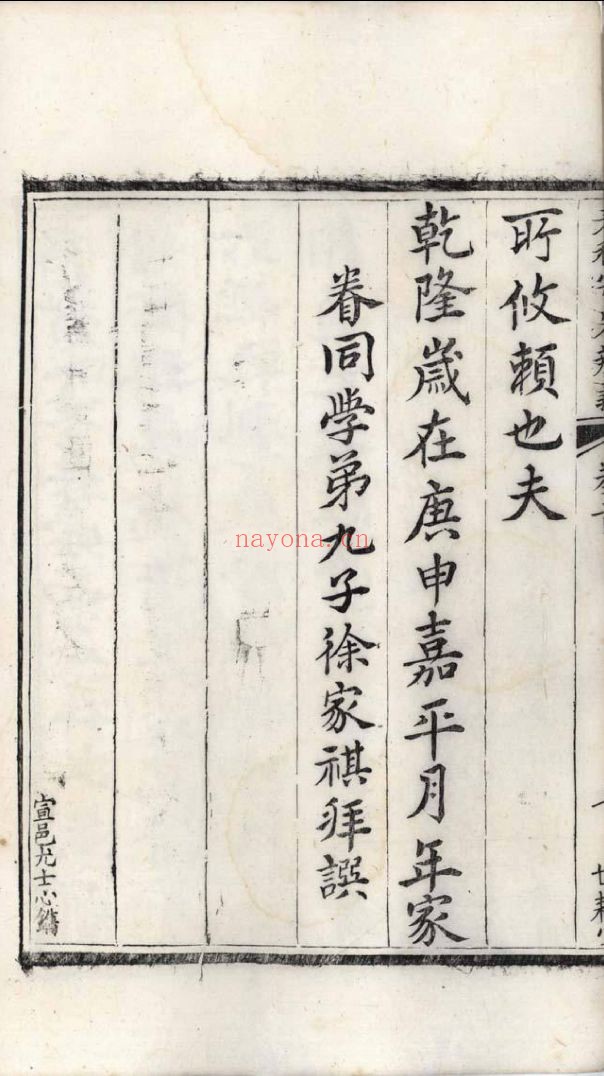 所攸賴也夫
乾隆歲在庚申嘉平月年家
眷同学弟九子徐家祺拜譔
宣邑尤士心鐫
nayona.cn